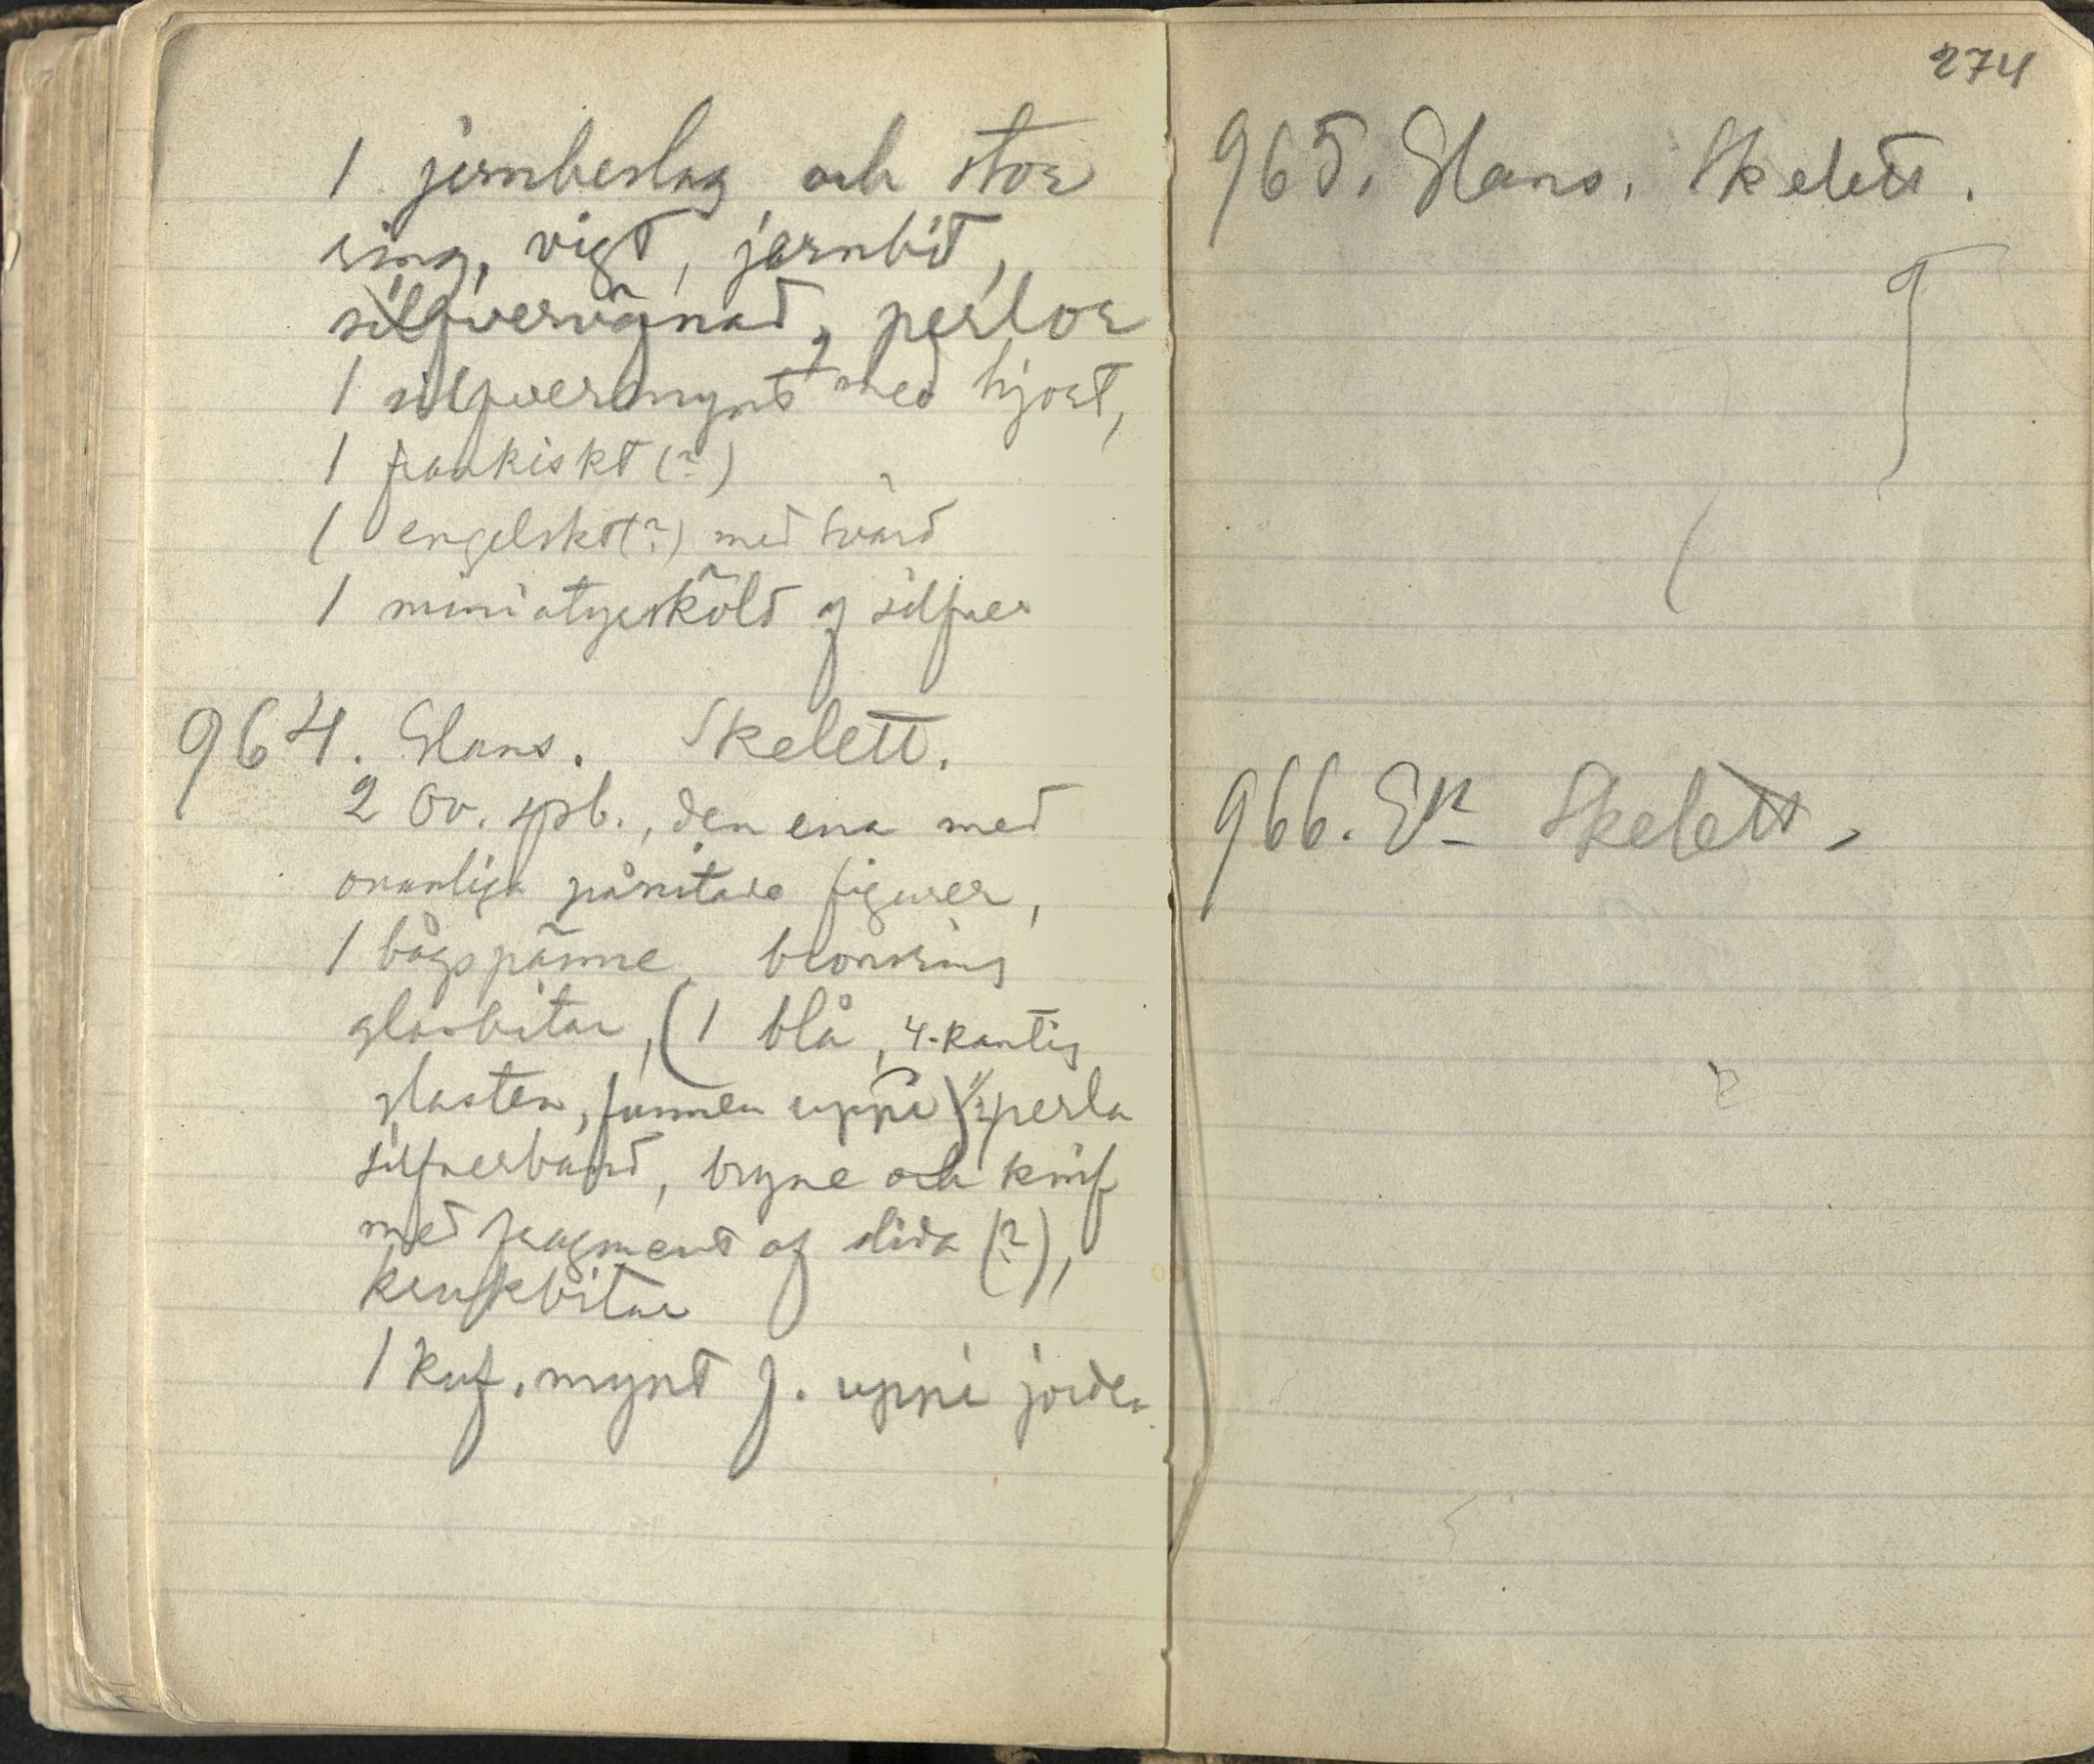 1 jernbeslag och stor
ring, vigt, jernbit,
silfvervägnad, perlor
1 silfvermynt med hjort,
1 frankiskt (?)
1 engelskt (?) med svärd
1 miniatyrsköld af silfver
964. Glans. Skelett.
2 ov. spb., den ena med
ovanliga påritade figurer,
1 bågspänne, bronsring
glasbitar, (1 blå, 4-kantig
glasten, funnen uppe) 1/2 perla
silfverband, bryne och knif
med fragment af slida (?),
krukbitar
1 kuf. mynt f. uppe i jorden
274
965. Glans. Skelett.
966. Skelett.